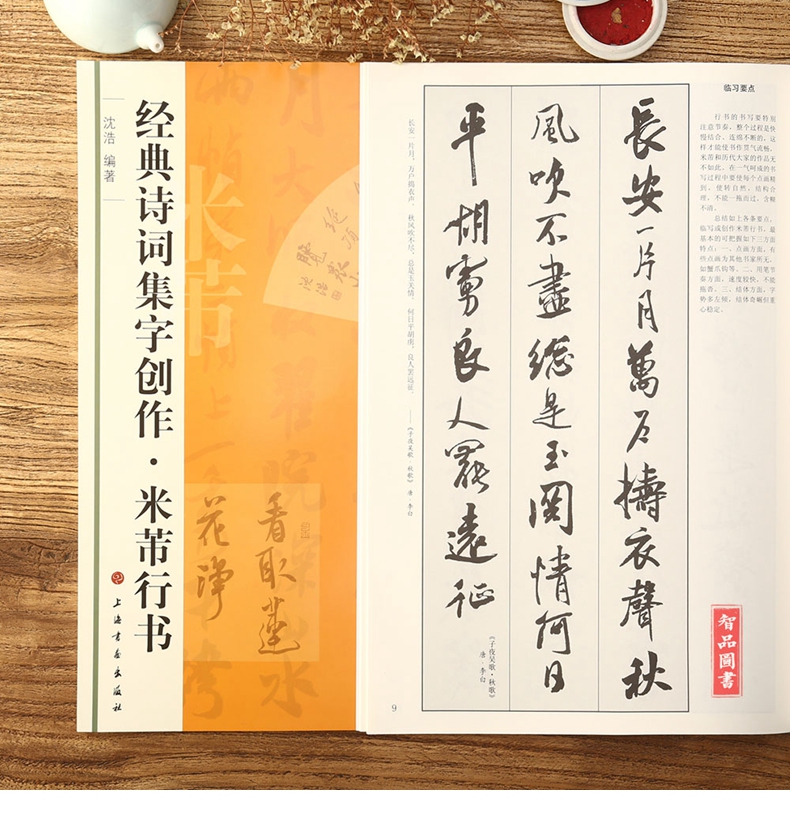 沈浩 编著
经典诗词集字创作·米芾行书
上海书画出版社
米芾
看取莲
花净
临习要点
行书的书写要特别
注意节奏，整个过程是快
慢结合、连绵不断的，这
样才能使书作贯气流畅。
米芾和历代大家的作品无
不如此。在一气呵成的书
写过程中要使每个点画精
到，使转自然，结构合
理，不能一拖而过，含糊
不清。
总结如上各条要点，
临写或创作米芾行书，最
基本的可把握如下三方面
特点：一、点画方面，有
些点画为其他书家所无，
如蟹爪钩等。二、用笔节
奏方面，速度较快，不能
拖沓。三、结体方面，字
势多左倾，结体奇崛但重
心稳定。
長安一片月萬戶擣衣聲秋
風吹不盡總是玉関情何日
平胡虜良人罷遠征
《子夜吴歌·秋歌》
唐·李白
长安一片月，万户捣衣声。秋风吹不尽，总是玉关情。何日平胡虏，良人罢远征。 ——《子夜吴歌·秋歌》 唐·李白
9
智品圖書